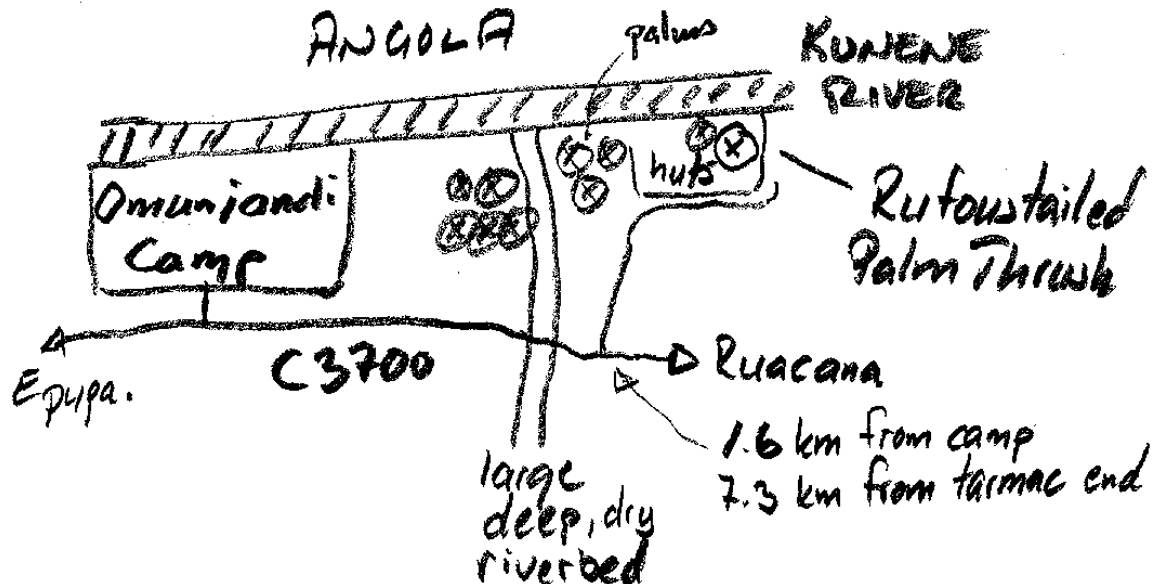 ANGOLA
palms
KUNENE
RIVER
huts
Omunjandi
Camp
Rufoustailed
Palm Thrush
C3700
Epupa.
Ruacana
1.6 km from camp
7.3 km from tarmac end
large
deep, dry
riverbed